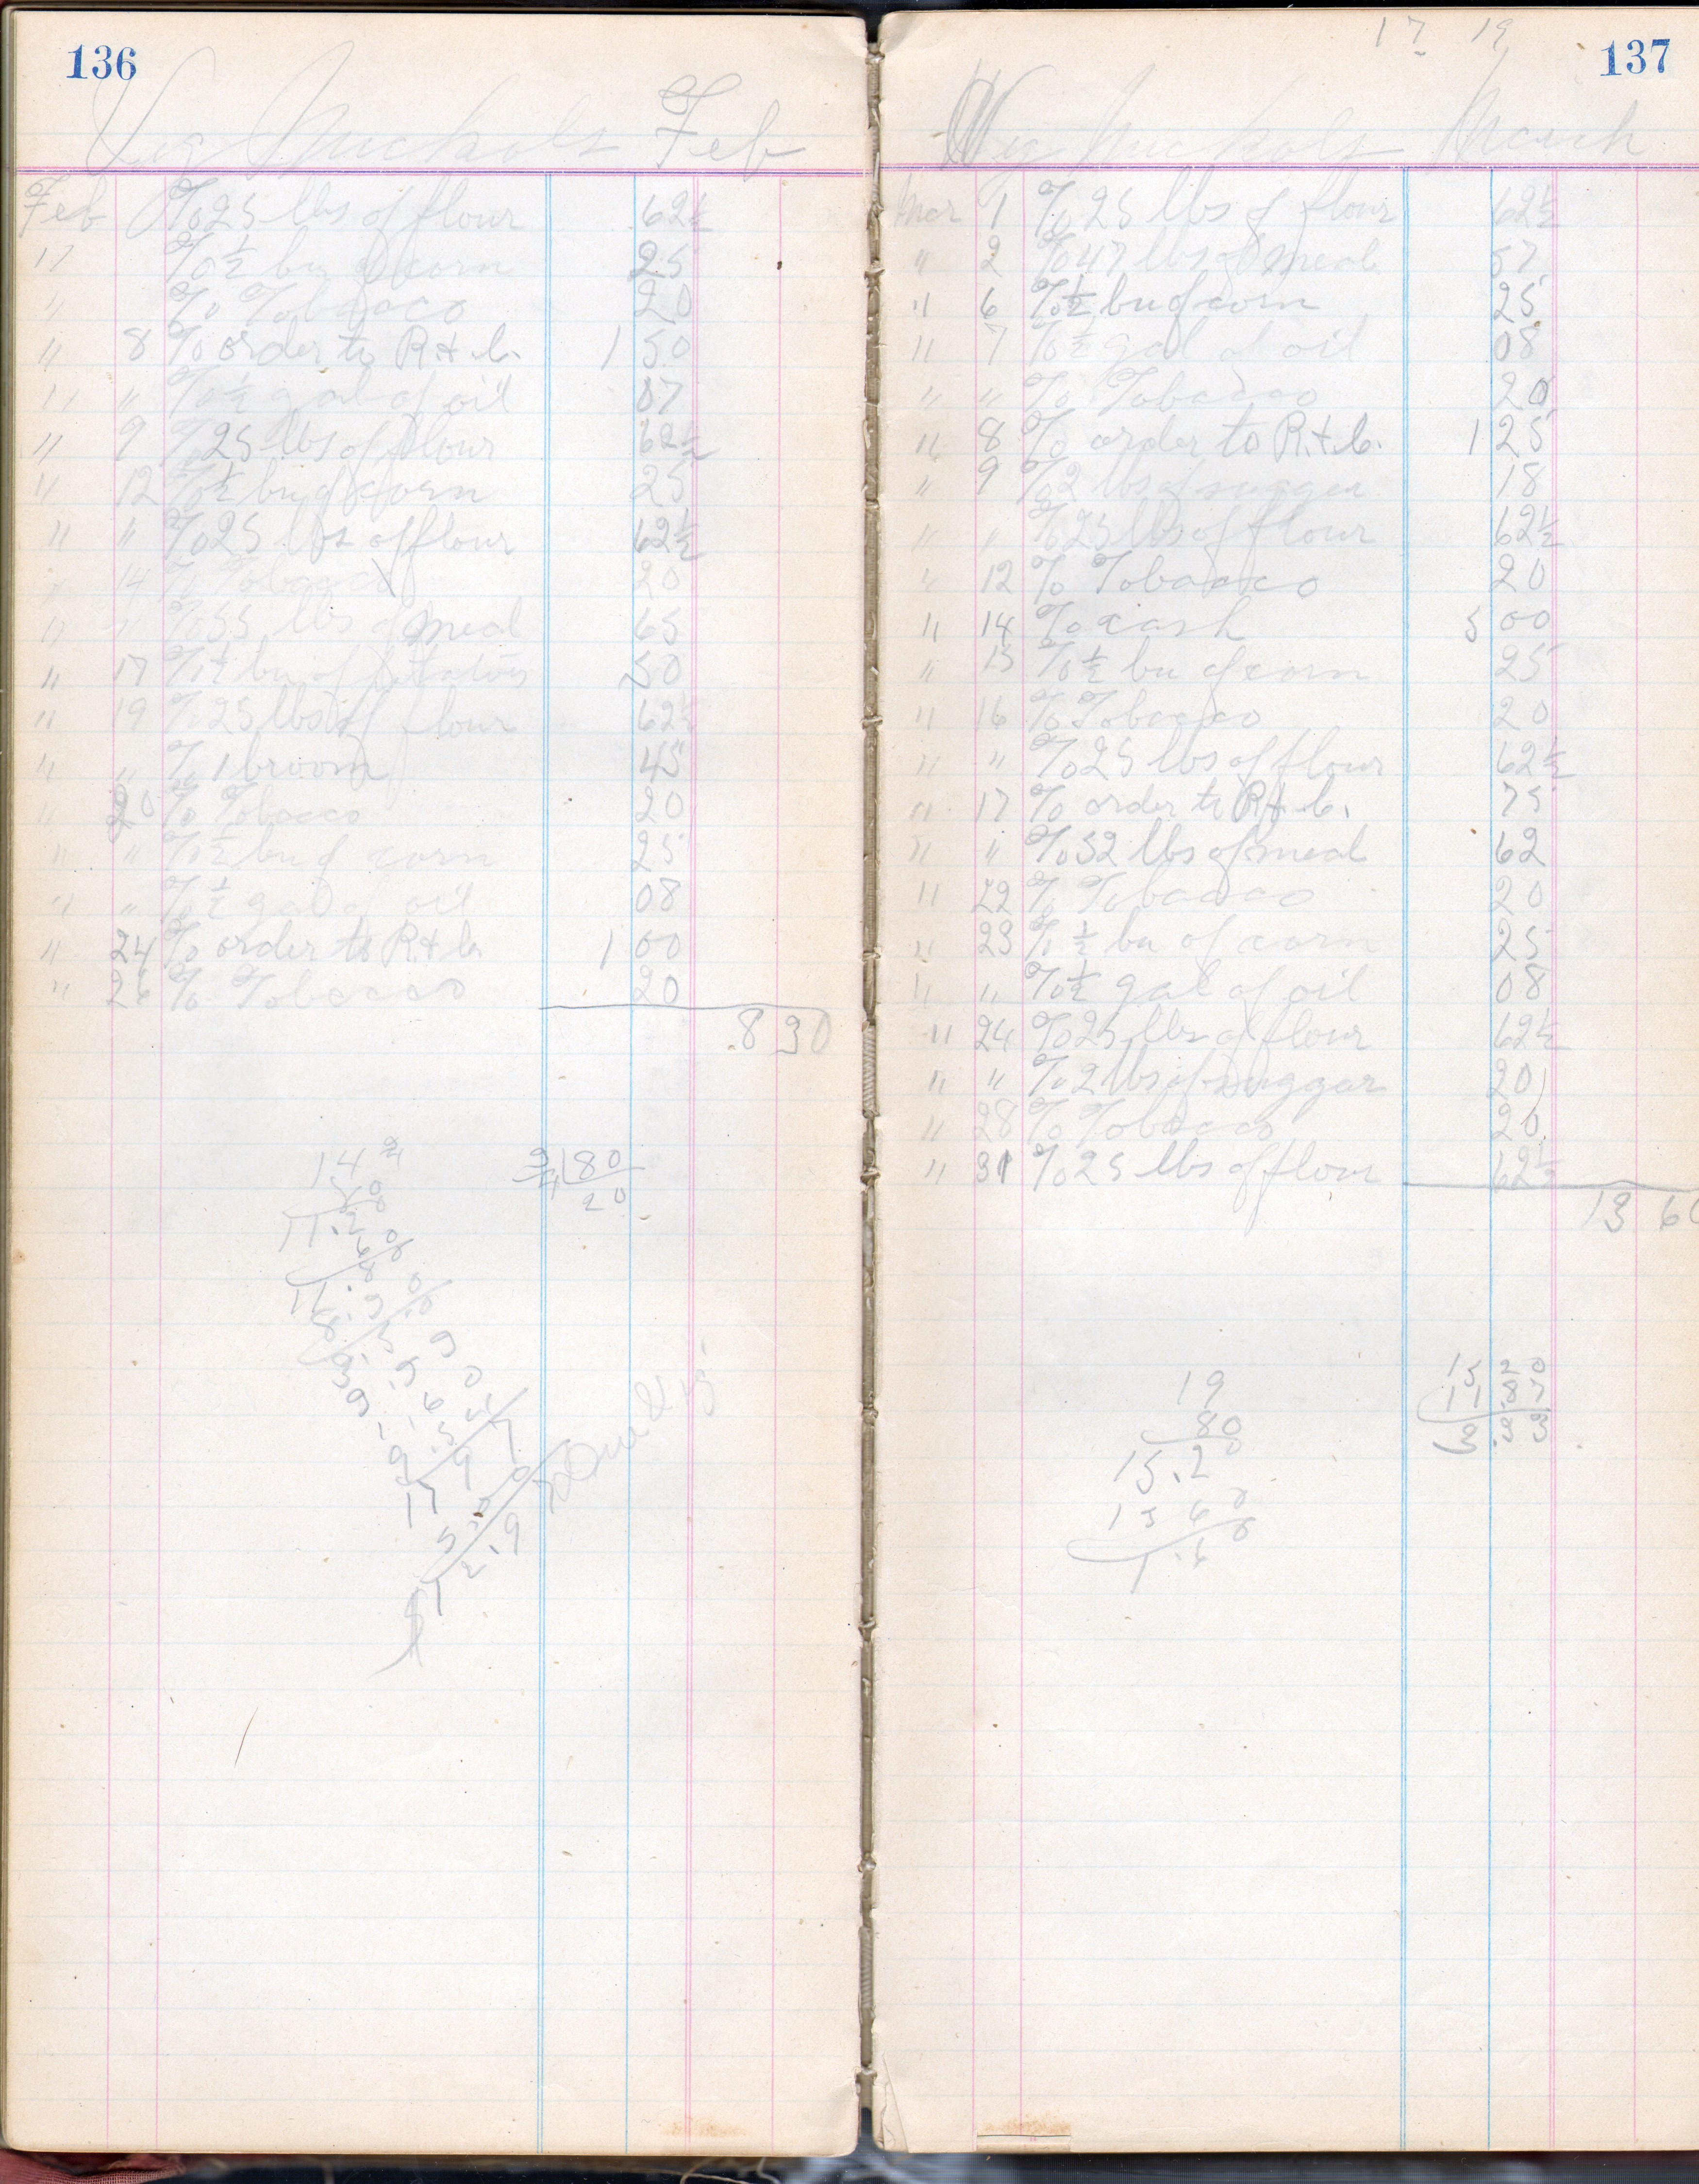 136
Vig Nuckols Feb
Feb % 25 lbs of flour 62½
" % ½ bu of corn 25
" % Tobacco 20
" 8 % order to R. & C. 1 50
" " % ½ gal of oil 07
" 9 % 25 lbs of flour 62½
" 12 % ½ bu of corn 25
" " % 25 lbs of flour 62½
" 14 % Tobacco 20
" " % 55 lbs of meal 65
" 17 % ½ bu of potatoes 50
" 19 % 25 lbs of flour 62½
" " % 1 broom 45
" 20 % Tobacco 20
" " % ½ bu of corn 25
" " % ½ gal of oil 08
" 24 % order to R & C. 1 00
" 26 % Tobacco 20
8 30
80
20
17 19
137
Vig Nuckols March
Mar 1 % 25 lbs of flour 62½
" 2 % 47 lbs of meal 57
" 6 % ½ bu of corn 25
" 7 % ½ gal of oil 08
" " % Tobacco 20
" 8 % order to R. & C. 1 25
" 9 % 2 lbs of suggar 18
" " % 25 lbs of flour 62½
" 12 % Tobacco 20
" 14 % cash 5 00
" 15 % ½ bu of corn 25
" 16 % Tobacco 20
" " % 25 lbs of flour 62½
" 17 % order to R & C. 75
" " % 52 lbs of meal 62
" 22 % Tobacco 20
" 23 % ½ bu of corn 25
" " % ½ gal of oil 08
" 24 % 25 lbs of flour 62½
" " % 2 lbs of suggar 20
" 28 % Tobacco 20
" 31 % 25 lbs of flour 62½
13 60
15 20
11.87
3.33
19
80
15.20
13 60
1.60